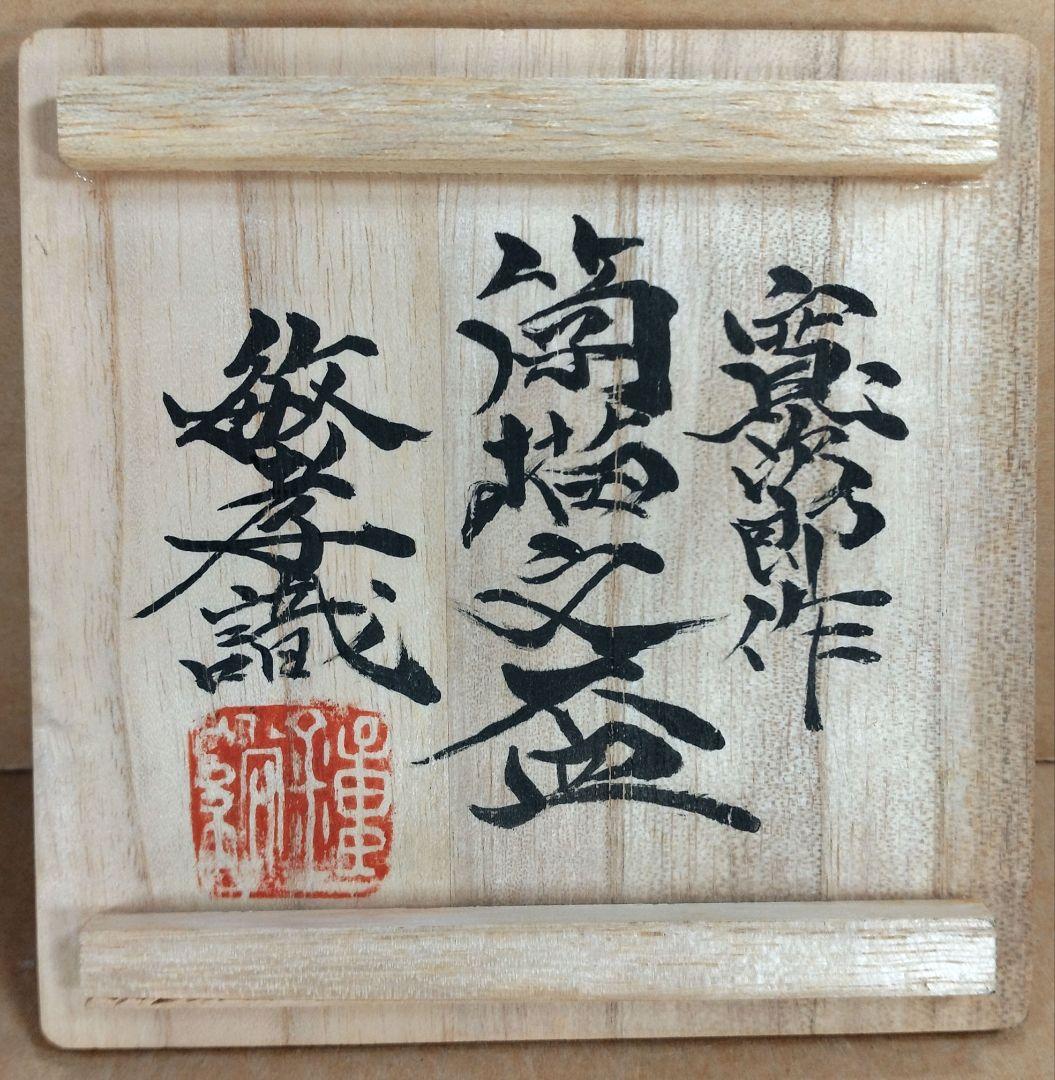 寛次郎作
筒描文盃
敏孝識